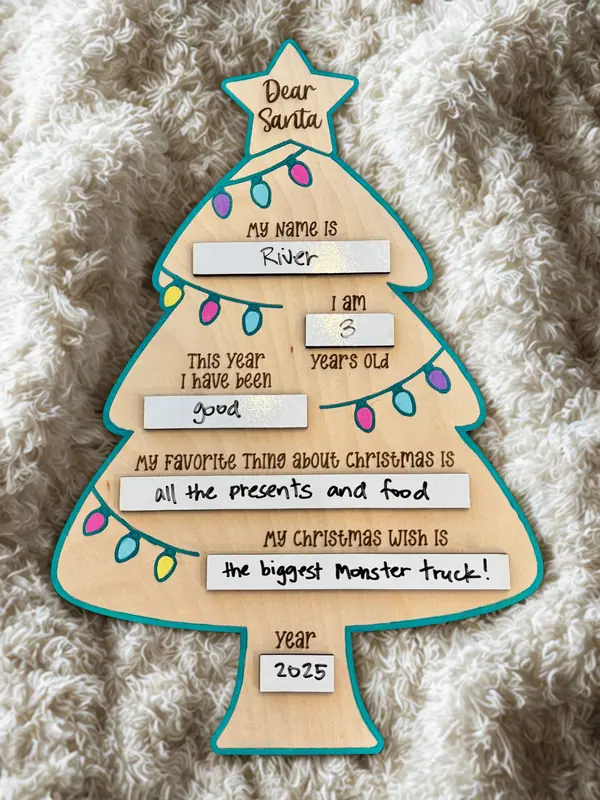 Dear
Santa
My Name is
River
I am
3
years old
This year
I have been
good
My Favorite Thing about Christmas is
all the presents and food
My Christmas Wish is
the biggest monster truck!
year
2025